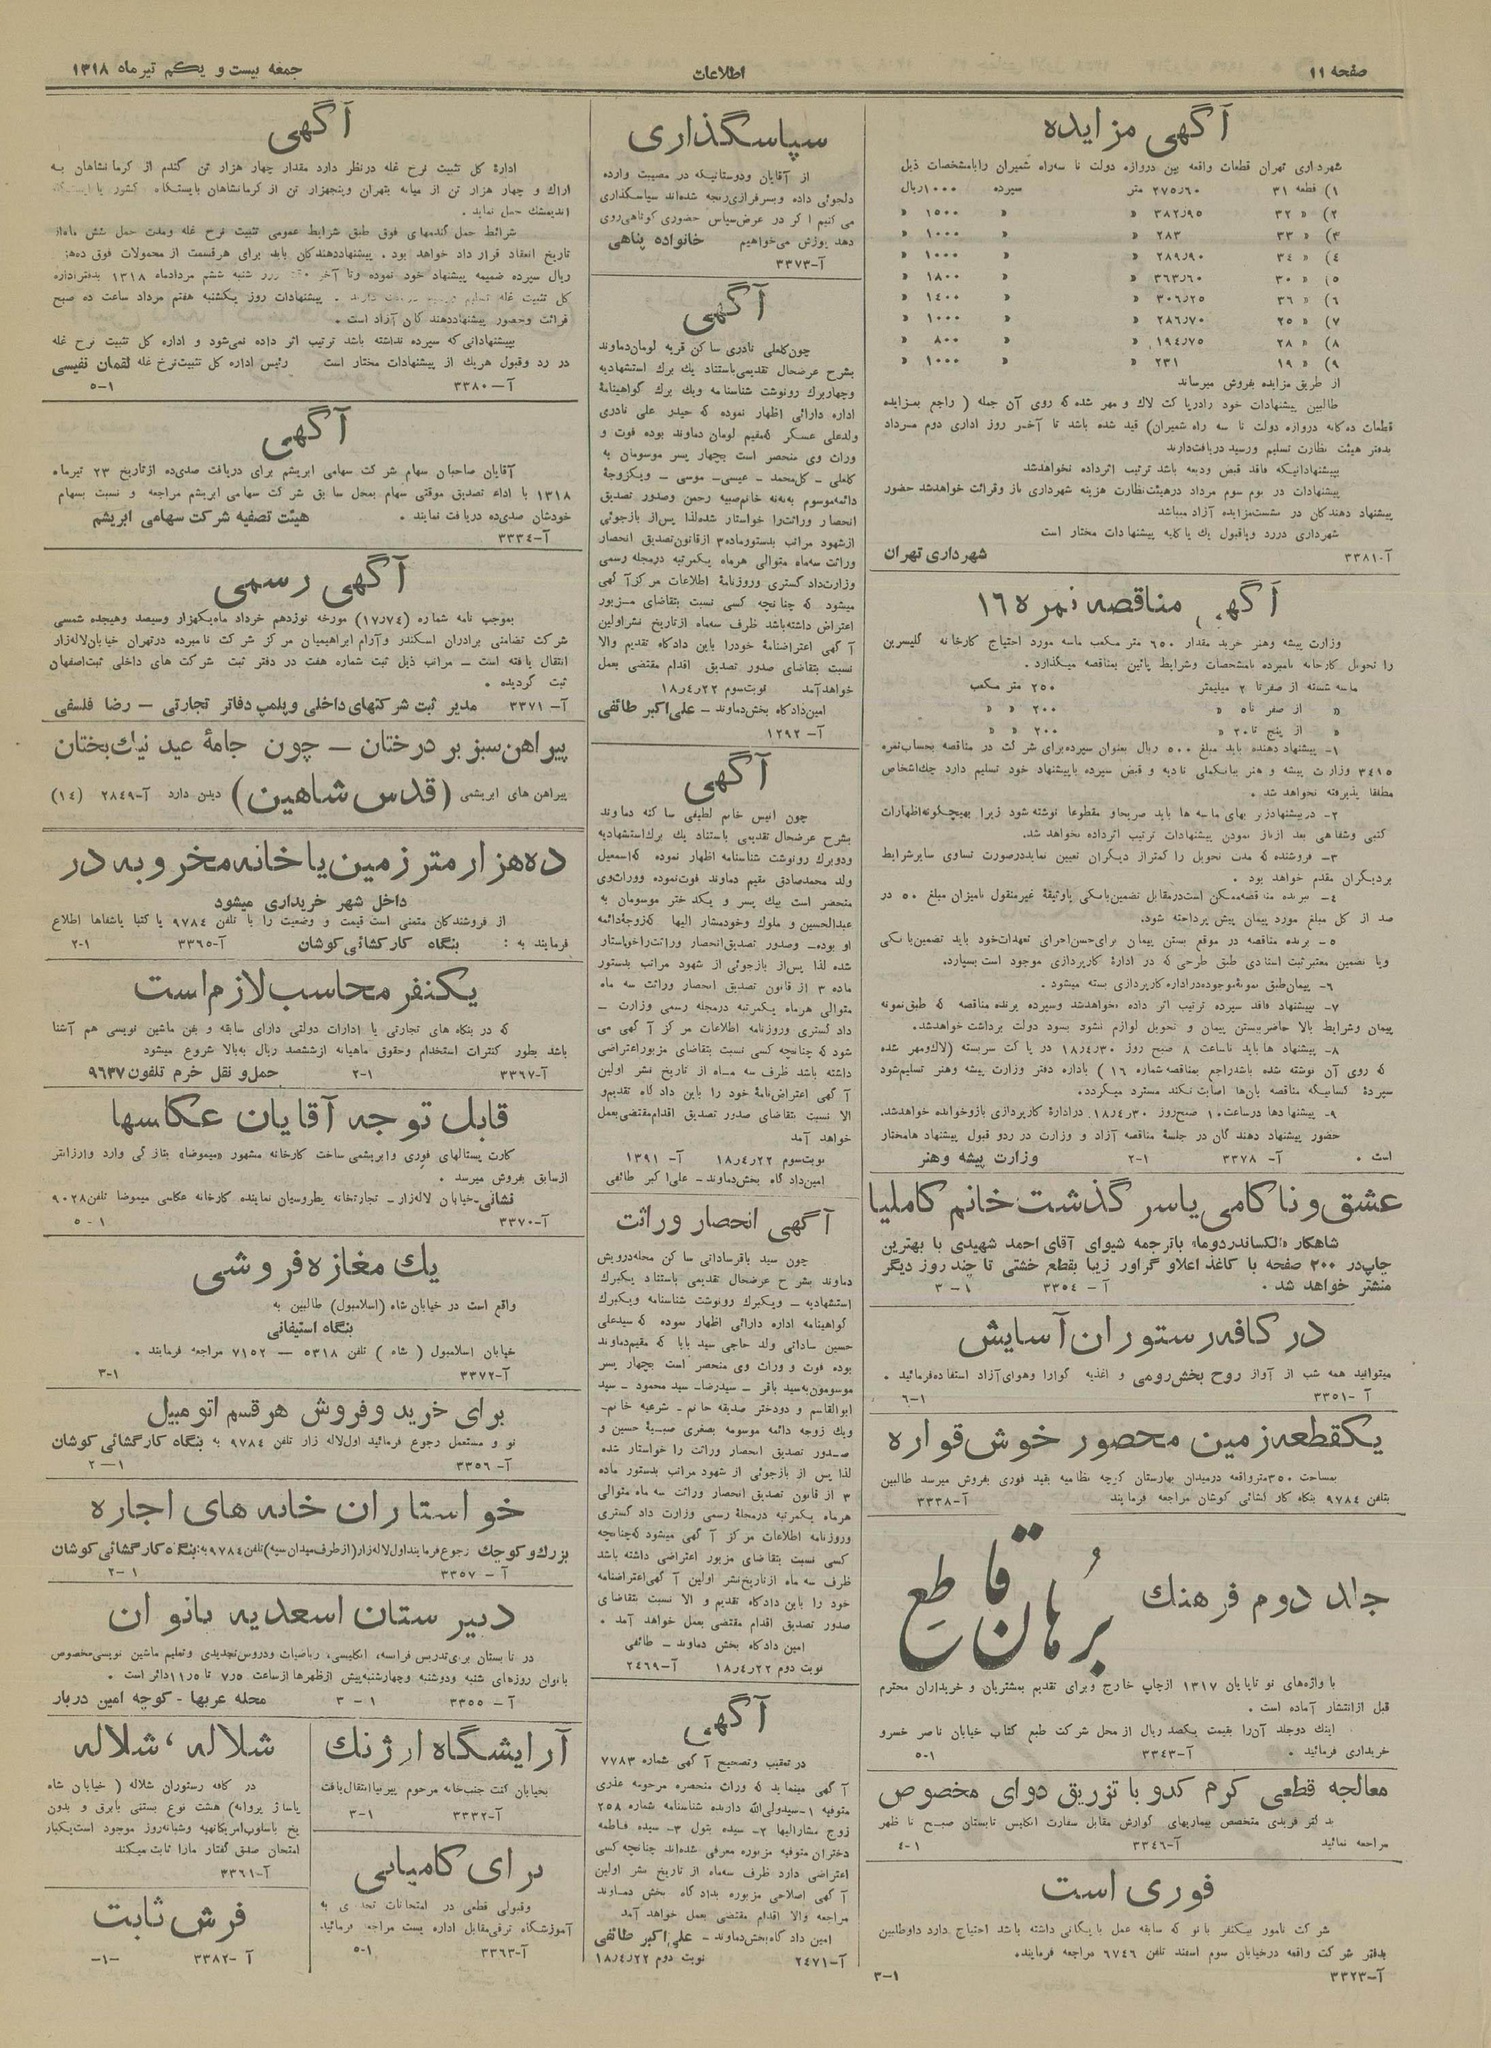 صفحه ۱۱
اطلاعات
جمعه بیست و یکم تیر ماه ۱۳۱۸
آگهی مزایده
شهرداری تهران قطعات واقعه بین دروازه دولت تا سه‌راه شمیران را بامشخصات ذیل
۱) قطعه ۳۱ ۲۷۵٫۶۰ متر سپرده ۱۰۰۰ ریال
۲) « ۳۲ ۳۸۲٫۹۵ « « ۱۵۰۰ «
۳) « ۳۳ ۲۸۳ « « ۱۰۰۰ «
۴) « ۳۴ ۲۸۹٫۹۰ « « ۱۰۰۰ «
۵) « ۳۰ ۳۶۳٫۶۰ « « ۱۸۰۰ «
۶) « ۳۶ ۳۰۶٫۲۵ « « ۱۴۰۰ «
۷) « ۲۵ ۲۸۶٫۷۰ « « ۱۰۰۰ «
۸) « ۲۸ ۱۹۴٫۷۵ « « ۸۰۰ «
۹) « ۱۹ ۲۳۱ « « ۱۰۰۰ «
از طریق مزایده بفروش میرساند
طالبین پیشنهادات خود را در پاکت لاک و مهر شده که روی آن جمله ( راجع بمزایده
قطعات ده‌گانه دروازه دولت تا سه راه شمیران) قید شده باشد تا آخر روز اداری دوم مرداد
بدفتر هیئت نظارت تسلیم و رسید دریافت دارند
بپیشنهاداتیکه فاقد قبض ودیعه باشد ترتیب اثر داده نخواهد شد
پیشنهادات در یوم سوم مرداد در هیئت نظارت هزینه شهرداری باز و قرائت خواهد شد حضور
پیشنهاد دهندگان در نشست مزایده آزاد میباشد
شهرداری در رد و یا قبول یک یا کلیه پیشنهادات مختار است
آ-۳۳۸۱ شهرداری تهران
آگهی مناقصه نمره ۱۶
وزارت پیشه وهنر خرید مقدار ۶۵۰ متر مکعب ماسه مورد احتیاج کارخانه گلیسرین
را تحویل کارخانه نامبرده بامشخصات وشرایط پائین بمناقصه میگذارد.
ماسه شسته از صفر تا ۲ میلیمتر ۲۵۰ متر مکعب
« از صفر تا ۵ « ۲۰۰ « «
« از پنج تا ۲۰ « ۲۰۰ « «
۱- پیشنهاد دهنده باید مبلغ ۵۰۰ ریال بعنوان سپرده برای شرکت در مناقصه بحساب نمره
۳۴۱۵ وزارت پیشه و هنر ببانک ملی تادیه و قبض سپرده با پیشنهاد خود تسلیم دارد چک اشخاص
مطلقا پذیرفته نخواهد شد.
۲- در پیشنهاد نیز بهای ماسه ها باید صریحا و مقطوعا نوشته شود زیرا بهیچگونه اظهارات
کتبی وشفاهی بعد از باز نمودن پیشنهادات ترتیب اثر داده نخواهد شد.
۳- فروشنده که مدت تحویل را کمتر از دیگران تعیین نماید در صورت تساوی سایر شرایط
بر دیگران مقدم خواهد بود.
۴- برنده مناقصه ممکن است در مقابل تضمین بانکی یا وثیقهٔ غیر منقول بامیزان مبلغ ۵۰ در
صد از کل مبلغ مورد پیمان پیش پرداخته شود.
۵- برنده مناقصه در موقع بستن پیمان برای حسن اجرای تعهدات خود باید تضمین بانکی
ویا تضمین معتبر ثبت اسنادی طبق طرحی که در ادارهٔ کارپردازی موجود است بسپارد.
۶- پیمان طبق نمونهٔ موجوده در اداره کارپردازی بسته میشود.
۷- پیشنهاد فاقد سپرده ترتیب اثر داده نخواهد شد وسپرده برنده مناقصه که طبق نمونه
پیمان وشرایط بالا حاضر ببستن پیمان و تحویل لوازم نشود بسود دولت برداشت خواهد شد.
۸- پیشنهاد ها باید تا ساعت ۸ صبح روز ۱۸٫۴٫۳۰ در پاکت سربسته (لاک ومهر شده
که روی آن نوشته شده باشد راجع بمناقصه شماره ۱۶) باداره دفتر وزارت پیشه وهنر تسلیم شود
سپردهٔ کسانیکه مناقصه بآن‌ها اصابت نکند مسترد میگردد.
۹- پیشنهادها در ساعت ۱۰ صبح روز ۱۸٫۴٫۳۰ در ادارهٔ کارپردازی باز و خوانده خواهد شد.
حضور پیشنهاد دهندگان در جلسهٔ مناقصه آزاد و وزارت در رد و قبول پیشنهاد ها مختار
است. آ- ۳۳۷۸ ۲-۱ وزارت پیشه وهنر
عشق و ناکامی یا سرگذشت خانم کاملیا
شاهکار «الکساندر دوما» با ترجمه شیوای آقای احمد شهیدی با بهترین
چاپ در ۲۰۰ صفحه با کاغذ اعلا و گراور زیبا بقطع خشتی تا چند روز دیگر
منتشر خواهد شد. آ- ۳۳۵۴ ۱- ۳
در کافه رستوران آسایش
میتوانید همه شب از آواز روح بخش رومی و اغذیه گوارا وهوای آزاد استفاده فرمائید.
آ-۳۳۵۱ ۱-۶
یکقطعه زمین محصور خوش قواره
بمساحت ۳۵۰ متر واقعه در میدان بهارستان کوچه نظامیه بقید فوری بفروش میرسد طالبین
بتلفن ۹۷۸۴ بنگاه کارگشائی کوشان مراجعه فرمایند آ-۳۳۳۸
جلد دوم فرهنگ برهان قاطع
با واژه‌های نو تا پایان ۱۳۱۷ از چاپ خارج و برای تقدیم بمشتریان و خریداران محترم
قبل از انتشار آماده است.
اینک دو جلد آن‌را بقیمت یکصد ریال از محل شرکت طبع کتاب خیابان ناصر خسرو
خریداری فرمائید. آ-۳۳۴۳ ۱-۵
معالجه قطعی کرم کدو با تزریق دوای مخصوص
بدکتر فریدی متخصص بیماریهای گوارش مقابل سفارت انگلیس تابستان صبح تا ظهر
مراجعه نمائید آ-۳۳۴۶ ۱-۴
فوری است
شرکت نامور بیکنفر بانو که سابقه عمل بایگانی داشته باشد احتیاج دارد داوطلبین
بدفتر شرکت واقعه در خیابان سوم اسفند تلفن ۶۷۴۶ مراجعه فرمایند.
آ-۳۳۲۳ ۱-۳
سپاسگذاری
از آقایان ودوستانیکه در مصیبت وارده
دلجوئی داده وبسرفرازی رنجه شده‌اند سپاسگذاری
می کنیم اگر در عرض سپاس حضوری کوتاهی روی
دهد پوزش می‌خواهیم خانواده پناهی
آ-۳۳۷۳
آگهی
چون کلعلی نادری ساکن قریه لومان دماوند
بشرح عرضحال تقدیمی باستناد یک برک استشهادیه
وچهار برک رونوشت شناسنامه ویک برک گواهینامهٔ
اداره دارائی اظهار نموده که حیدر علی نادری
ولد علی عسکر که مقیم لومان دماوند بوده فوت و
وراث وی منحصر است بچهار پسر موسومان به
کلعلی - کل محمد - عیسی - موسی - ویکزوجهٔ
دائمه موسوم به ننه خانم صبیه رحمن وصدور تصدیق
انحصار وراثت را خواستار شده لذا پس از بازجوئی
از شهود مراتب بدستور ماده ۳ از قانون تصدیق انحصار
وراثت سه ماه متوالی هر ماه یکمرتبه در مجله رسمی
وزارت داد گستری وروزنامهٔ اطلاعات مرکز آگهی
میشود که چنانچه کسی نسبت بتقاضای مزبور
اعتراض داشته باشد ظرف سه ماه از تاریخ نشر اولین
آگهی اعتراضنامهٔ خود را باین دادگاه تقدیم والا
نسبت بتقاضای صدور تصدیق اقدام مقتضی بعمل
خواهد آمد نوبت سوم ۱۸٫۴٫۲۲
امین دادگاه بخش دماوند - علی اکبر طائفی
آ- ۱۲۹۲
آگهی
چون انیس خانم لطیفی ساکنه دماوند
بشرح عرضحال تقدیمی باستناد یک برک استشهادیه
ودوبرک رونوشت شناسنامه اظهار نموده که اسمعیل
ولد محمد صادق مقیم دماوند فوت نموده ووراث وی
منحصر است بیک پسر و یکدختر موسومان به
عبدالحسین و ملوک وخود مستار الیها که زوجهٔ دائمه
او بوده- وصدور تصدیق انحصار وراثت را خواستار
شده لذا پس از بازجوئی از شهود مراتب بدستور
ماده ۳ از قانون تصدیق انحصار وراثت سه ماه
متوالی هر ماه یکمرتبه در مجله رسمی وزارت -
داد گستری وروزنامه اطلاعات مرکز آگهی می
شود که چنانچه کسی نسبت بتقاضای مزبور اعتراضی
داشته باشد ظرف سه ماه از تاریخ نشر اولین
آگهی اعتراض‌نامهٔ خود را باین دادگاه تقدیم و
الا نسبت بتقاضای صدور تصدیق اقدام مقتضی بعمل
خواهد آمد
نوبت سوم ۱۸٫۴٫۲۲ آ- ۱۳۹۱
امین دادگاه بخش دماوند- علی اکبر طائفی
آگهی انحصار وراثت
چون سید باقر ساداتی ساکن محله درویش
دماوند بشرح عرضحال تقدیمی باستناد یکبرک
استشهادیه - ویکبرک رونوشت شناسنامه ویکبرک
گواهینامه اداره دارائی اظهار نموده که سید علی
حسین ساداتی ولد حاجی سید بابا که مقیم دماوند
بوده فوت و وراث وی منحصر است بچهار پسر
موسومون به سید باقر - سید رضا- سید محمود - سید
ابوالقاسم و دو دختر صدیقه خانم - شرعیه خانم-
ویک زوجه دائمه موسومه بصغری صبیهٔ حسین و
صدور تصدیق انحصار وراثت را خواستار شده
لذا پس از بازجوئی از شهود مراتب بدستور ماده
۳ از قانون تصدیق انحصار وراثت سه ماه متوالی
هر ماه یکمرتبه در مجلهٔ رسمی وزارت داد گستری
وروزنامه اطلاعات مرکز آگهی میشود که چنانچه
کسی نسبت بتقاضای مزبور اعتراضی داشته باشد
ظرف سه ماه از تاریخ نشر اولین آگهی اعتراضنامه
خود را باین دادگاه تقدیم و الا نسبت بتقاضای
صدور تصدیق اقدام مقتضی بعمل خواهد آمد.
امین دادگاه بخش دماوند - طائفی
نوبت دوم ۱۸٫۴٫۲۲ آ-۲۴۶۹
آگهی
در تعقیب وتصحیح آگهی شماره ۷۷۸۳
آگهی مینماید که وراث منحصره مرحومه عذری
متوفیه ۱-سید ولی‌الله دارنده شناسنامه شماره ۲۵۸
زوج مشارالیها ۲- سیده بتول ۳- سیده فاطمه
دختران متوفیه مزبوره معرفی شده‌اند چنانچه کسی
اعتراضی دارد ظرف سه‌ماه از تاریخ نشر اولین
آگهی اصلاحی مزبوره بدادگاه بخش دماوند
مراجعه والا اقدام مقتضی بعمل خواهد آمد
امین دادگاه بخش دماوند - علی اکبر طائفی
آ-۲۴۷۱ نوبت دوم ۱۸٫۴٫۲۲
آگهی
اداره کل تثبیت نرخ غله در نظر دارد مقدار چهار هزار تن گندم از کرمانشاهان به
اراک و چهار هزار تن از میانه بتهران وپنجهزار تن از کرمانشاهان بایستگاه کشور یا ایستگاه
اندیمشک حمل نماید.
شرائط حمل گندمهای فوق طبق شرایط عمومی تثبیت نرخ غله ومدت حمل شش ماه از
تاریخ انعقاد قرار داد خواهد بود. پیشنهاد دهندگان باید برای هر قسمت از محمولات فوق ده هزار
ریال سپرده ضمیمه پیشنهاد خود نموده وتا آخر روز شنبه ششم مرداد ماه ۱۳۱۸ بدفتر اداره
کل تثبیت غله تسلیم دارند. پیشنهادات روز یکشنبه هفتم مرداد ساعت ده صبح
قرائت وحضور پیشنهاد دهندگان آزاد است.
بپیشنهاداتی که سپرده نداشته باشد ترتیب اثر داده نمی‌شود و اداره کل تثبیت نرخ غله
در رد وقبول هریک از پیشنهادات مختار است رئیس اداره کل تثبیت نرخ غله لقمان نفیسی
آ-۳۳۸۰ ۱-۵
آگهی
آقایان صاحبان سهام شرکت سهامی ابریشم برای دریافت صدی ده از تاریخ ۲۳ تیر ماه
۱۳۱۸ با اداء تصدیق موقتی سهام بمحل سابق شرکت سهامی ابریشم مراجعه و نسبت بسهام
خودشان صدی ده دریافت نمایند. هیئت تصفیه شرکت سهامی ابریشم
آ-۳۳۳۴
آگهی رسمی
بموجب نامه شماره (۱۷٫۷۴) مورخه نوزدهم خرداد ماه یکهزار وسیصد وهیجده شمسی
شرکت تضامنی برادران اسکندر وآرام ابراهیمیان مرکز شرکت نامبرده در تهران خیابان لاله‌زار
انتقال یافته است - مراتب ذیل ثبت شماره هفت در دفتر ثبت شرکت های داخلی ثبت اصفهان
ثبت گردیده.
آ-۳۳۷۱ مدیر ثبت شرکتهای داخلی وپلمپ دفاتر تجارتی - رضا فلسفی
پیراهن سبز بر درختان - چون جامهٔ عید نیک بختان
پیراهن های ابریشمی (قدس شاهین) دیدن دارد آ-۲۸۴۹ (۱۴)
ده هزار متر زمین یا خانه مخروبه در
داخل شهر خریداری میشود
از فروشندگان متمنی است قیمت و وضعیت را با تلفن ۹۷۸۴ یا کتبا یا شفاها اطلاع
فرمایند به: بنگاه کارگشائی کوشان آ-۳۳۶۵ ۱-۲
یکنفر محاسب لازم است
که در بنگاه های تجارتی یا ادارات دولتی دارای سابقه و بفن ماشین نویسی هم آشنا
باشد بطور کنترات استخدام وحقوق ماهیانه از ششصد ریال ببالا شروع میشود
آ-۳۳۶۷ ۱-۲ حمل و نقل خرم تلفون ۹۶۳۷
قابل توجه آقایان عکاسها
کارت پستالهای فوری وابریشمی ساخت کارخانه مشهور «میموضا» بتازگی وارد وارزانتر
از سابق بفروش میرسد.
نشانی-خیابان لاله‌زار- تجارتخانه پطروسیان نماینده کارخانه عکاسی میموضا تلفن ۹۰۲۸
آ-۳۳۷۰ ۱-۵
یک مغازه فروشی
واقع است در خیابان شاه (اسلامبول) طالبین به
بنگاه استیفانی
خیابان اسلامبول ( شاه ) تلفن ۵۳۱۸ - ۷۱۵۲ مراجعه فرمایند.
آ-۳۳۷۲ ۱-۳
برای خرید و فروش هر قسم اتومبیل
نو و مستعمل رجوع فرمائید اول لاله زار تلفن ۹۷۸۴ به بنگاه کارگشائی کوشان
آ- ۳۳۵۶ ۱-۲
خواستاران خانه های اجاره
بزرگ و کوچک رجوع فرمایند اول لاله‌زار (از طرف میدان سپه) تلفن ۹۷۸۴ به: بنگاه کارگشائی کوشان
آ- ۳۳۵۷ ۱-۲
دبیرستان اسعدیه بانوان
در تابستان برای تدریس فرانسه، انگلیسی، ریاضیات ودروس تجدیدی وتعلیم ماشین نویسی مخصوص
بانوان روزهای شنبه ودوشنبه وچهارشنبه پیش از ظهرها از ساعت ۷٫۵ تا ۱۱٫۵ دائر است.
آ- ۳۳۵۵ ۱- ۳ محله عربها - کوچه امین دربار
آرایشگاه ارژنگ
بخیابان کنت جنب خانه مرحوم پیرنیا انتقال یافت
آ-۳۳۳۲ ۱-۳
برای کامیابی
وقبولی قطعی در امتحانات به
آموزشگاه ترقی مقابل اداره پست مراجعه فرمائید
آ-۳۳۶۳ ۱-۵
شلاله، شلاله
در کافه رستوران شلاله ( خیابان شاه
پاساژ پروانه) هشت نوع بستنی بابرق و بدون
یخ باسلوب امریکانیه وشبانه‌روز موجود است یکبار
امتحان صدق گفتار مارا ثابت میکند
آ-۳۳۶۱
فرش ثابت
آ -۳۳۸۲ -۱-